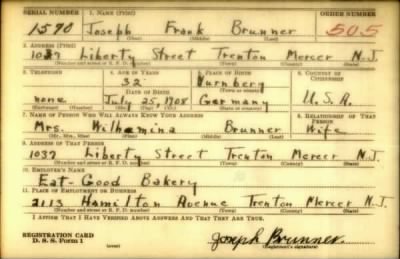 SERIAL NUMBER 1. NAME (Print) ORDER NUMBER
1590 Joseph Frank Brunner 505
(First) (Middle) (Last)
2. ADDRESS (Print)
1037 Liberty Street Trenton Mercer N.J.
(Number and street or R. F. D. number) (Town) (County) (State)
3. TELEPHONE 4. AGE IN YEARS 5. PLACE OF BIRTH 6. COUNTRY OF CITIZENSHIP
32 Nurnberg
DATE OF BIRTH (Town or county)
none July 25, 1908 Germany U.S.A.
(Exchange) (Number) (Mo.) (Day) (Yr.) (State or country)
7. NAME OF PERSON WHO WILL ALWAYS KNOW YOUR ADDRESS 8. RELATIONSHIP OF THAT PERSON
Mrs. Wilhemina Brunner Wife
(Mr., Mrs., Miss) (First) (Middle) (Last)
9. ADDRESS OF THAT PERSON
1037 Liberty Street Trenton Mercer N.J.
(Number and street or R. F. D. number) (Town) (County) (State)
10. EMPLOYER'S NAME
Eat-Good Bakery
11. PLACE OF EMPLOYMENT OR BUSINESS
2113 Hamilton Avenue Trenton Mercer N.J.
(Number and street or R. F. D. number) (Town) (County) (State)
I AFFIRM THAT I HAVE VERIFIED ABOVE ANSWERS AND THAT THEY ARE TRUE.
REGISTRATION CARD
D. S. S. Form 1 (over) Joseph Brunner
(Registrant's signature)